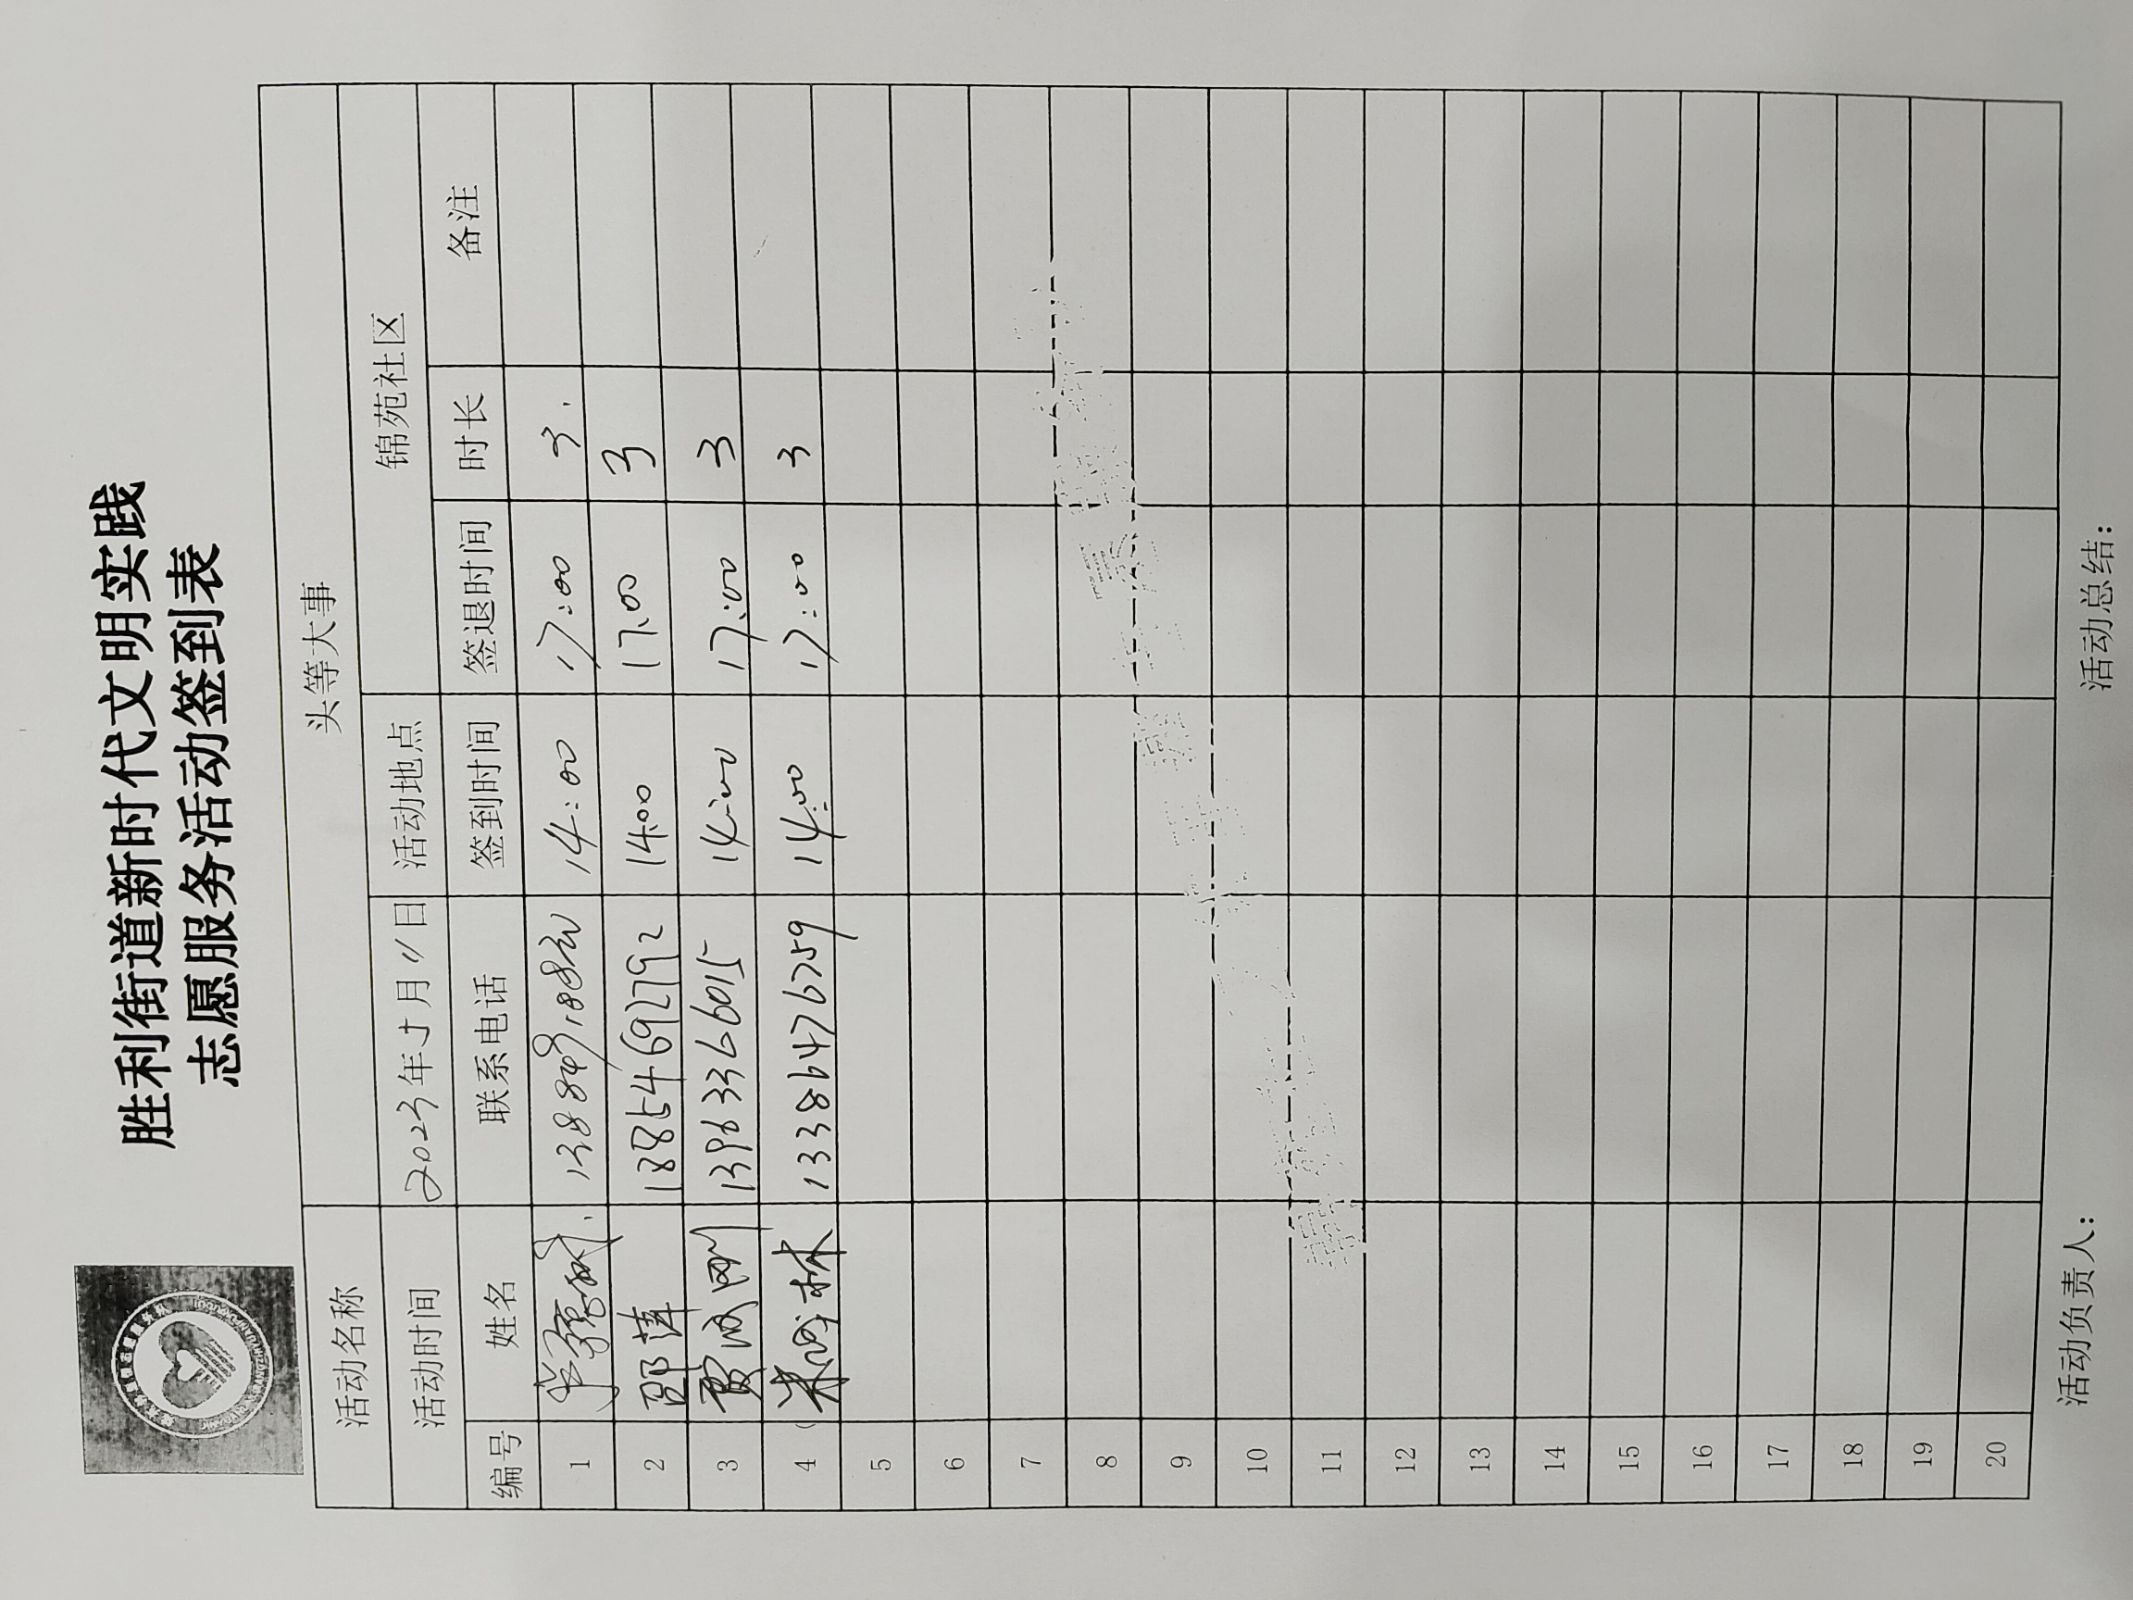 胜利街道新时代文明实践
志愿服务活动签到表
活动名称 头等大事
活动时间 2023年5月11日 活动地点 锦苑社区
编号 姓名 联系电话 签到时间 签退时间 时长 备注
1 14:00 17:00 3.
2 邵萍 18854692792 14:00 17:00 3
3 贾成刚 13963366015 14:00 17:00 3
4 林 13386476759 14:00 17:00 3
5
6
7
8
9
10
11
12
13
14
15
16
17
18
19
20
活动负责人: 活动总结: